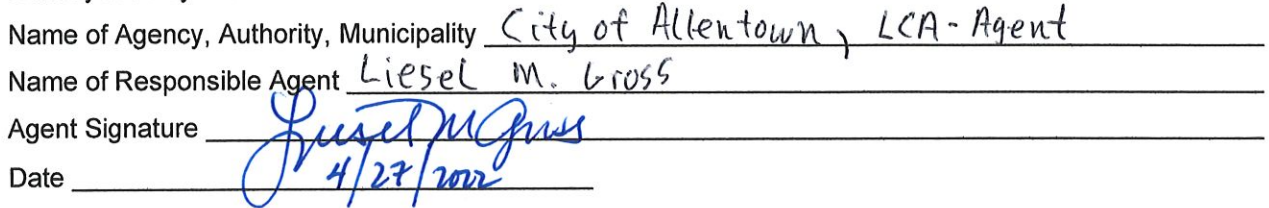 Name of Agency, Authority, Municipality City of Allentown, LCA-Agent
Name of Responsible Agent Liesel M. Gross
Agent Signature Liesel M Gross
Date 4/27/2022